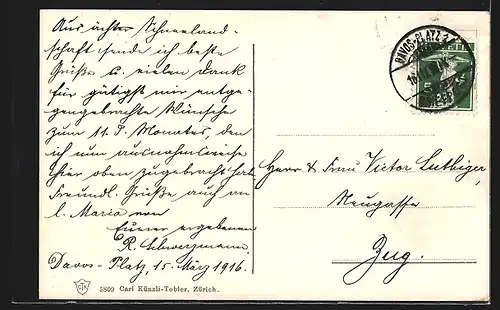 Aus ächter Schneeland-
schaft sende ich beste
Grüße u. vielen Dank
für gütigst mir entge-
gengebrachte Wünsche
zum 11. d. Monates, den
ich nun ausnahmsweise
hier oben zugebracht hab.
Freundl. Grüße auch an
l. Maria von
Eurer ergebenen
R. Schwerzmann
Davos-Platz, 15. März 1916.
DAVOS-PLATZ
Herr & Frau Victor Luthiger,
Neugasse
Zug.
5809 Carl Künzli-Tobler, Zürich.